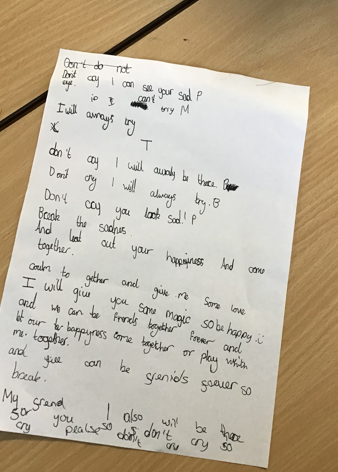 Don't do not
Dont cry I can see your sad P
eye.
is I can't try M
I will always try
T
don't cry I will awaly be there.
Dont cry I will always try. B
Don't cry you look sad! P
Break the sadnes.
And leat out your happiyness And come
together.
coum to gether and give me some love
I will give you some magic so be happy
and we can be friends together forever and
let our happyness come together or play whith
me. together.
and give can be grenids goever so
break.
My grend
for you I also will be there
cry pealse so don't cry so